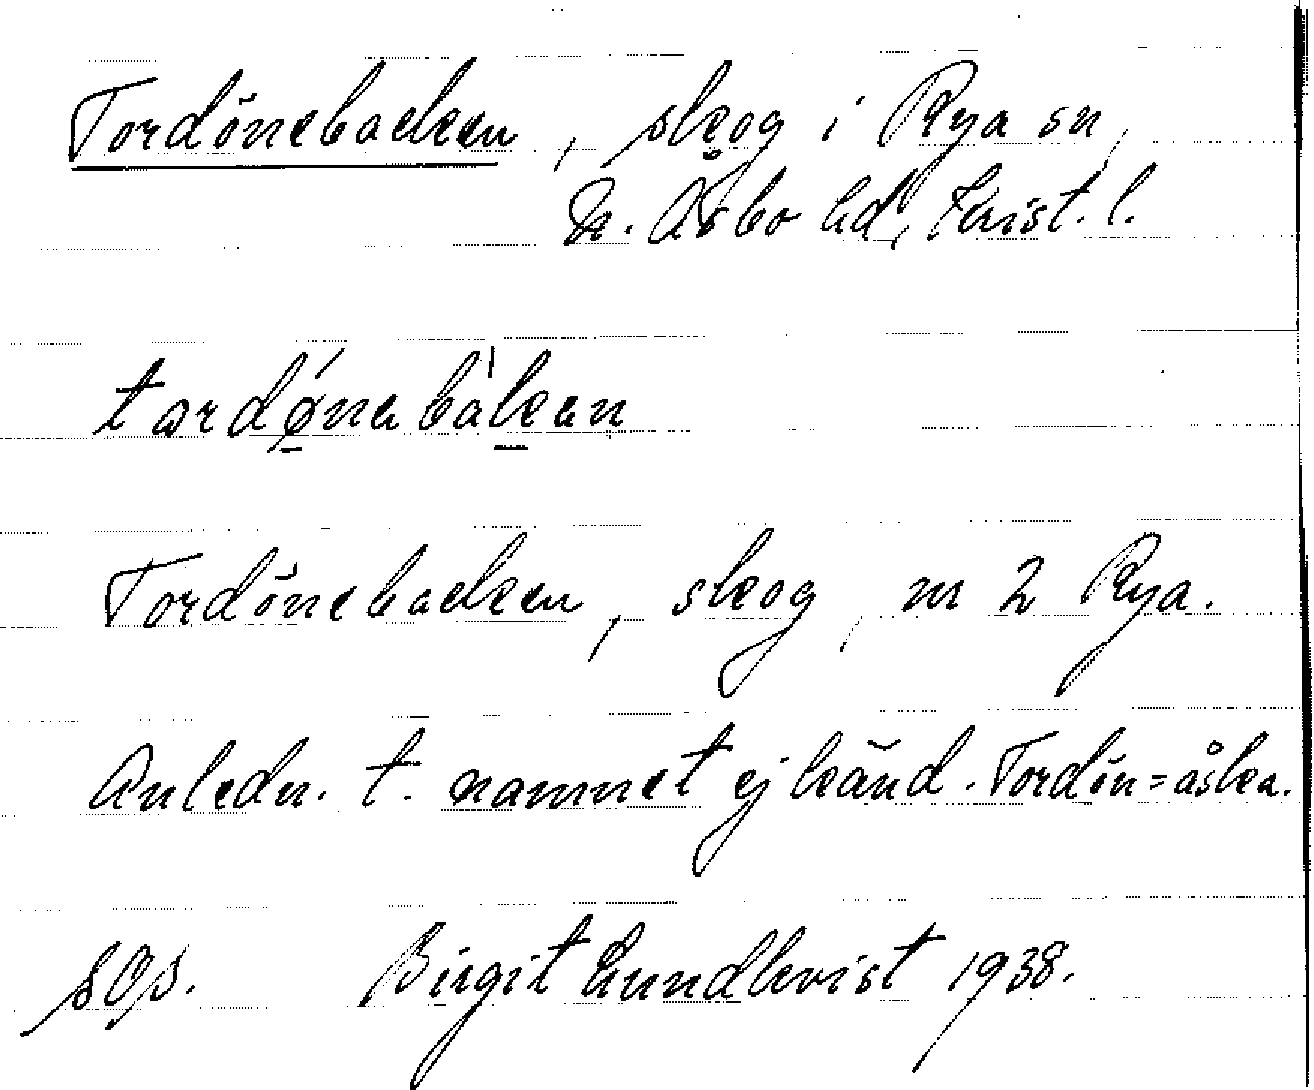 Tordönebacken, skog i Rya sn,
N. Åsbo hd, Krist. l.
tordǿnebàkan
Tordönebacken, skog, nr 2 Rya.
Anledn. t. namnet ej känd. Tordön = åska.
Birgit Lundkvist 1938.